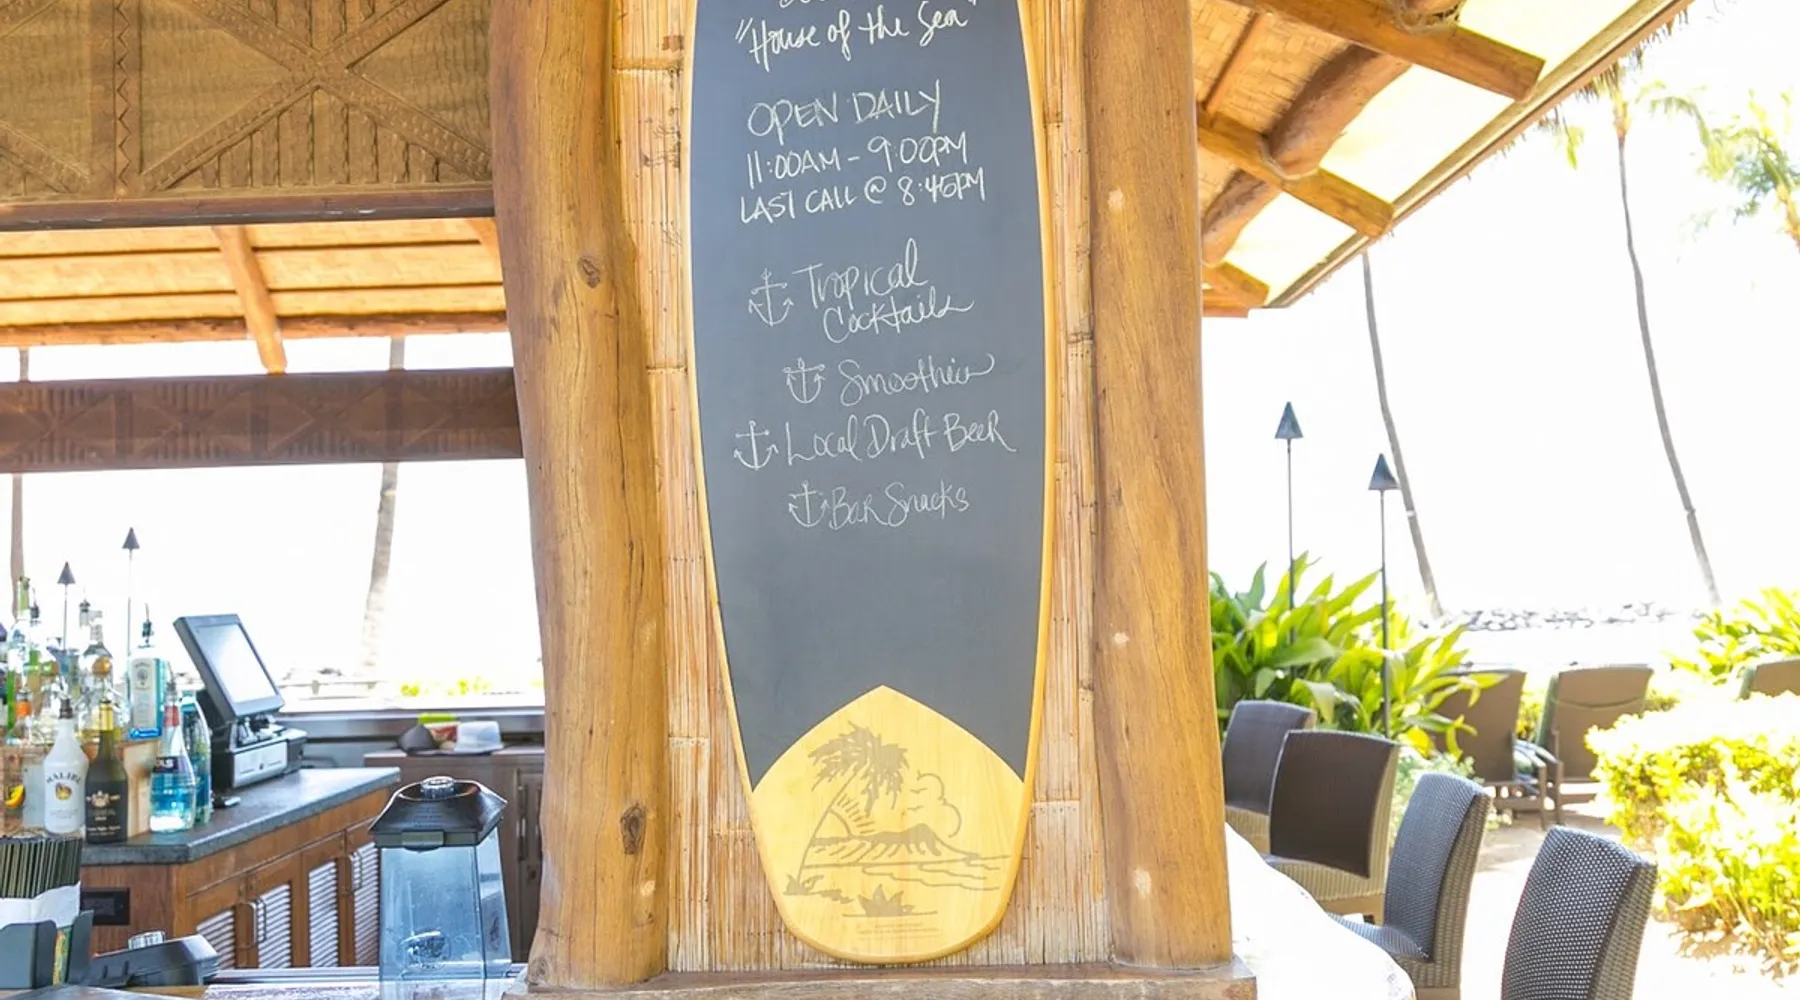 "House of the Sea"
OPEN DAILY
11:00AM - 9:00PM
LAST CALL @ 8:45PM
Tropical
Cocktails
Smoothies
Local Draft Beer
Bar Snacks
MALIBU